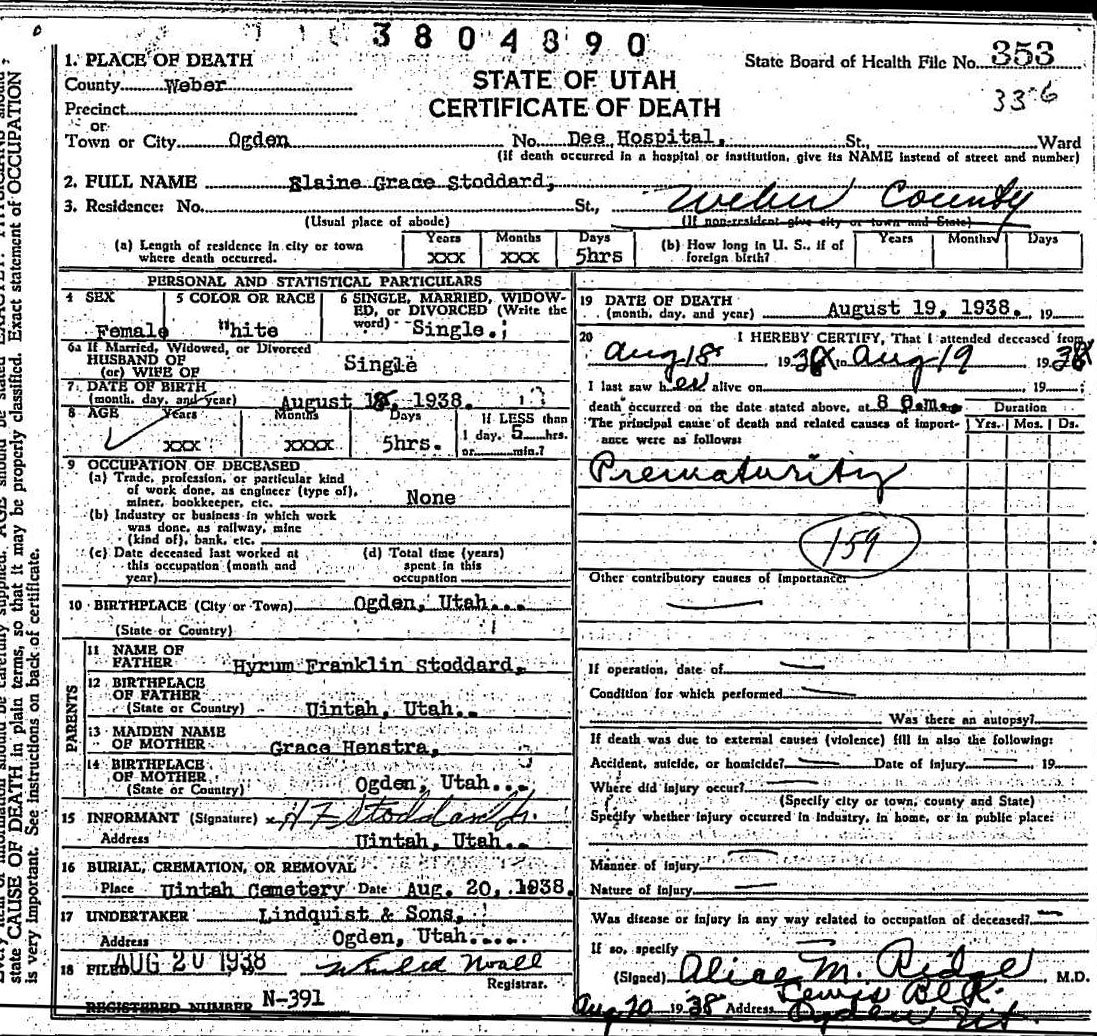 3804890
1. PLACE OF DEATH
State Board of Health File No. 353
County Weber
STATE OF UTAH
33-6
Precinct
CERTIFICATE OF DEATH
or
Town or City Ogden No. Dee Hospital, St., Ward
(If death occurred in a hospital or institution, give its NAME instead of street and number)
2. FULL NAME Elaine Grace Stoddard,
3. Residence: No. St., Weber County
(Usual place of abode) (If non-resident give city or town and State)
(a) Length of residence in city or town where death occurred. Years xxx Months xxx Days 5hrs
(b) How long in U. S., if of foreign birth? Years Months Days
PERSONAL AND STATISTICAL PARTICULARS
4 SEX Female
5 COLOR OR RACE White
6 SINGLE, MARRIED, WIDOW-
ED, or DIVORCED (Write the
word) Single.
6a If Married, Widowed, or Divorced
HUSBAND OF
(or) WIFE OF Single
7. DATE OF BIRTH
(month, day, and year) August 18, 1938.
8 AGE Years xxx Months xxxx Days 5hrs.
If LESS than
1 day, 5 hrs.
or min.?
9 OCCUPATION OF DECEASED
(a) Trade, profession, or particular kind
of work done, as engineer (type of),
miner, bookkeeper, etc. None
(b) Industry or business in which work
was done, as railway, mine
(kind of), bank, etc.
(c) Date deceased last worked at
this occupation (month and
year)
(d) Total time (years)
spent in this
occupation
10 BIRTHPLACE (City or Town) Ogden, Utah...
(State or Country)
PARENTS
11 NAME OF
FATHER Hyrum Franklin Stoddard,
12 BIRTHPLACE
OF FATHER
(State or Country) Uintah, Utah..
13 MAIDEN NAME
OF MOTHER Grace Henstra,
14 BIRTHPLACE
OF MOTHER
(State or Country) Ogden, Utah...
15 INFORMANT (Signature) x H F Stoddard Jr.
Address Uintah, Utah..
16 BURIAL, CREMATION, OR REMOVAL
Place Uintah Cemetery Date Aug. 20, 1938.
17 UNDERTAKER Lindquist & Sons,
Address Ogden, Utah....
18 FILED AUG 20 1938
Registrar.
REGISTERED NUMBER N-391
19 DATE OF DEATH
(month, day, and year) August 19, 1938. 19
20 I HEREBY CERTIFY, That I attended deceased from
Aug 18 1938 to Aug 19 1938
I last saw her alive on , 19 ;
death occurred on the date stated above, at 8 p.m.
Duration
The principal cause of death and related causes of import-
ance were as follows:
Yrs. Mos. Ds.
Prematurity
159
Other contributory causes of importance:
If operation, date of
Condition for which performed
Was there an autopsy?
If death was due to external causes (violence) fill in also the following:
Accident, suicide, or homicide? Date of injury 19
Where did injury occur?
(Specify city or town, county and State)
Specify whether injury occurred in industry, in home, or in public place:
Manner of injury
Nature of injury
Was disease or injury in any way related to occupation of deceased?
If so, specify
(Signed) Alice M. Ridge M.D.
Lewis Blk.
Aug 20 1938 Address Ogden Ut.
state CAUSE OF DEATH in plain terms, so that it may be properly classified. Exact statement of OCCUPATION
is very important. See instructions on back of certificate.